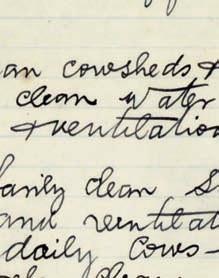 an cowsheds &
clean water
& ventilation
fairly clean S
and ventilat
daily cows -